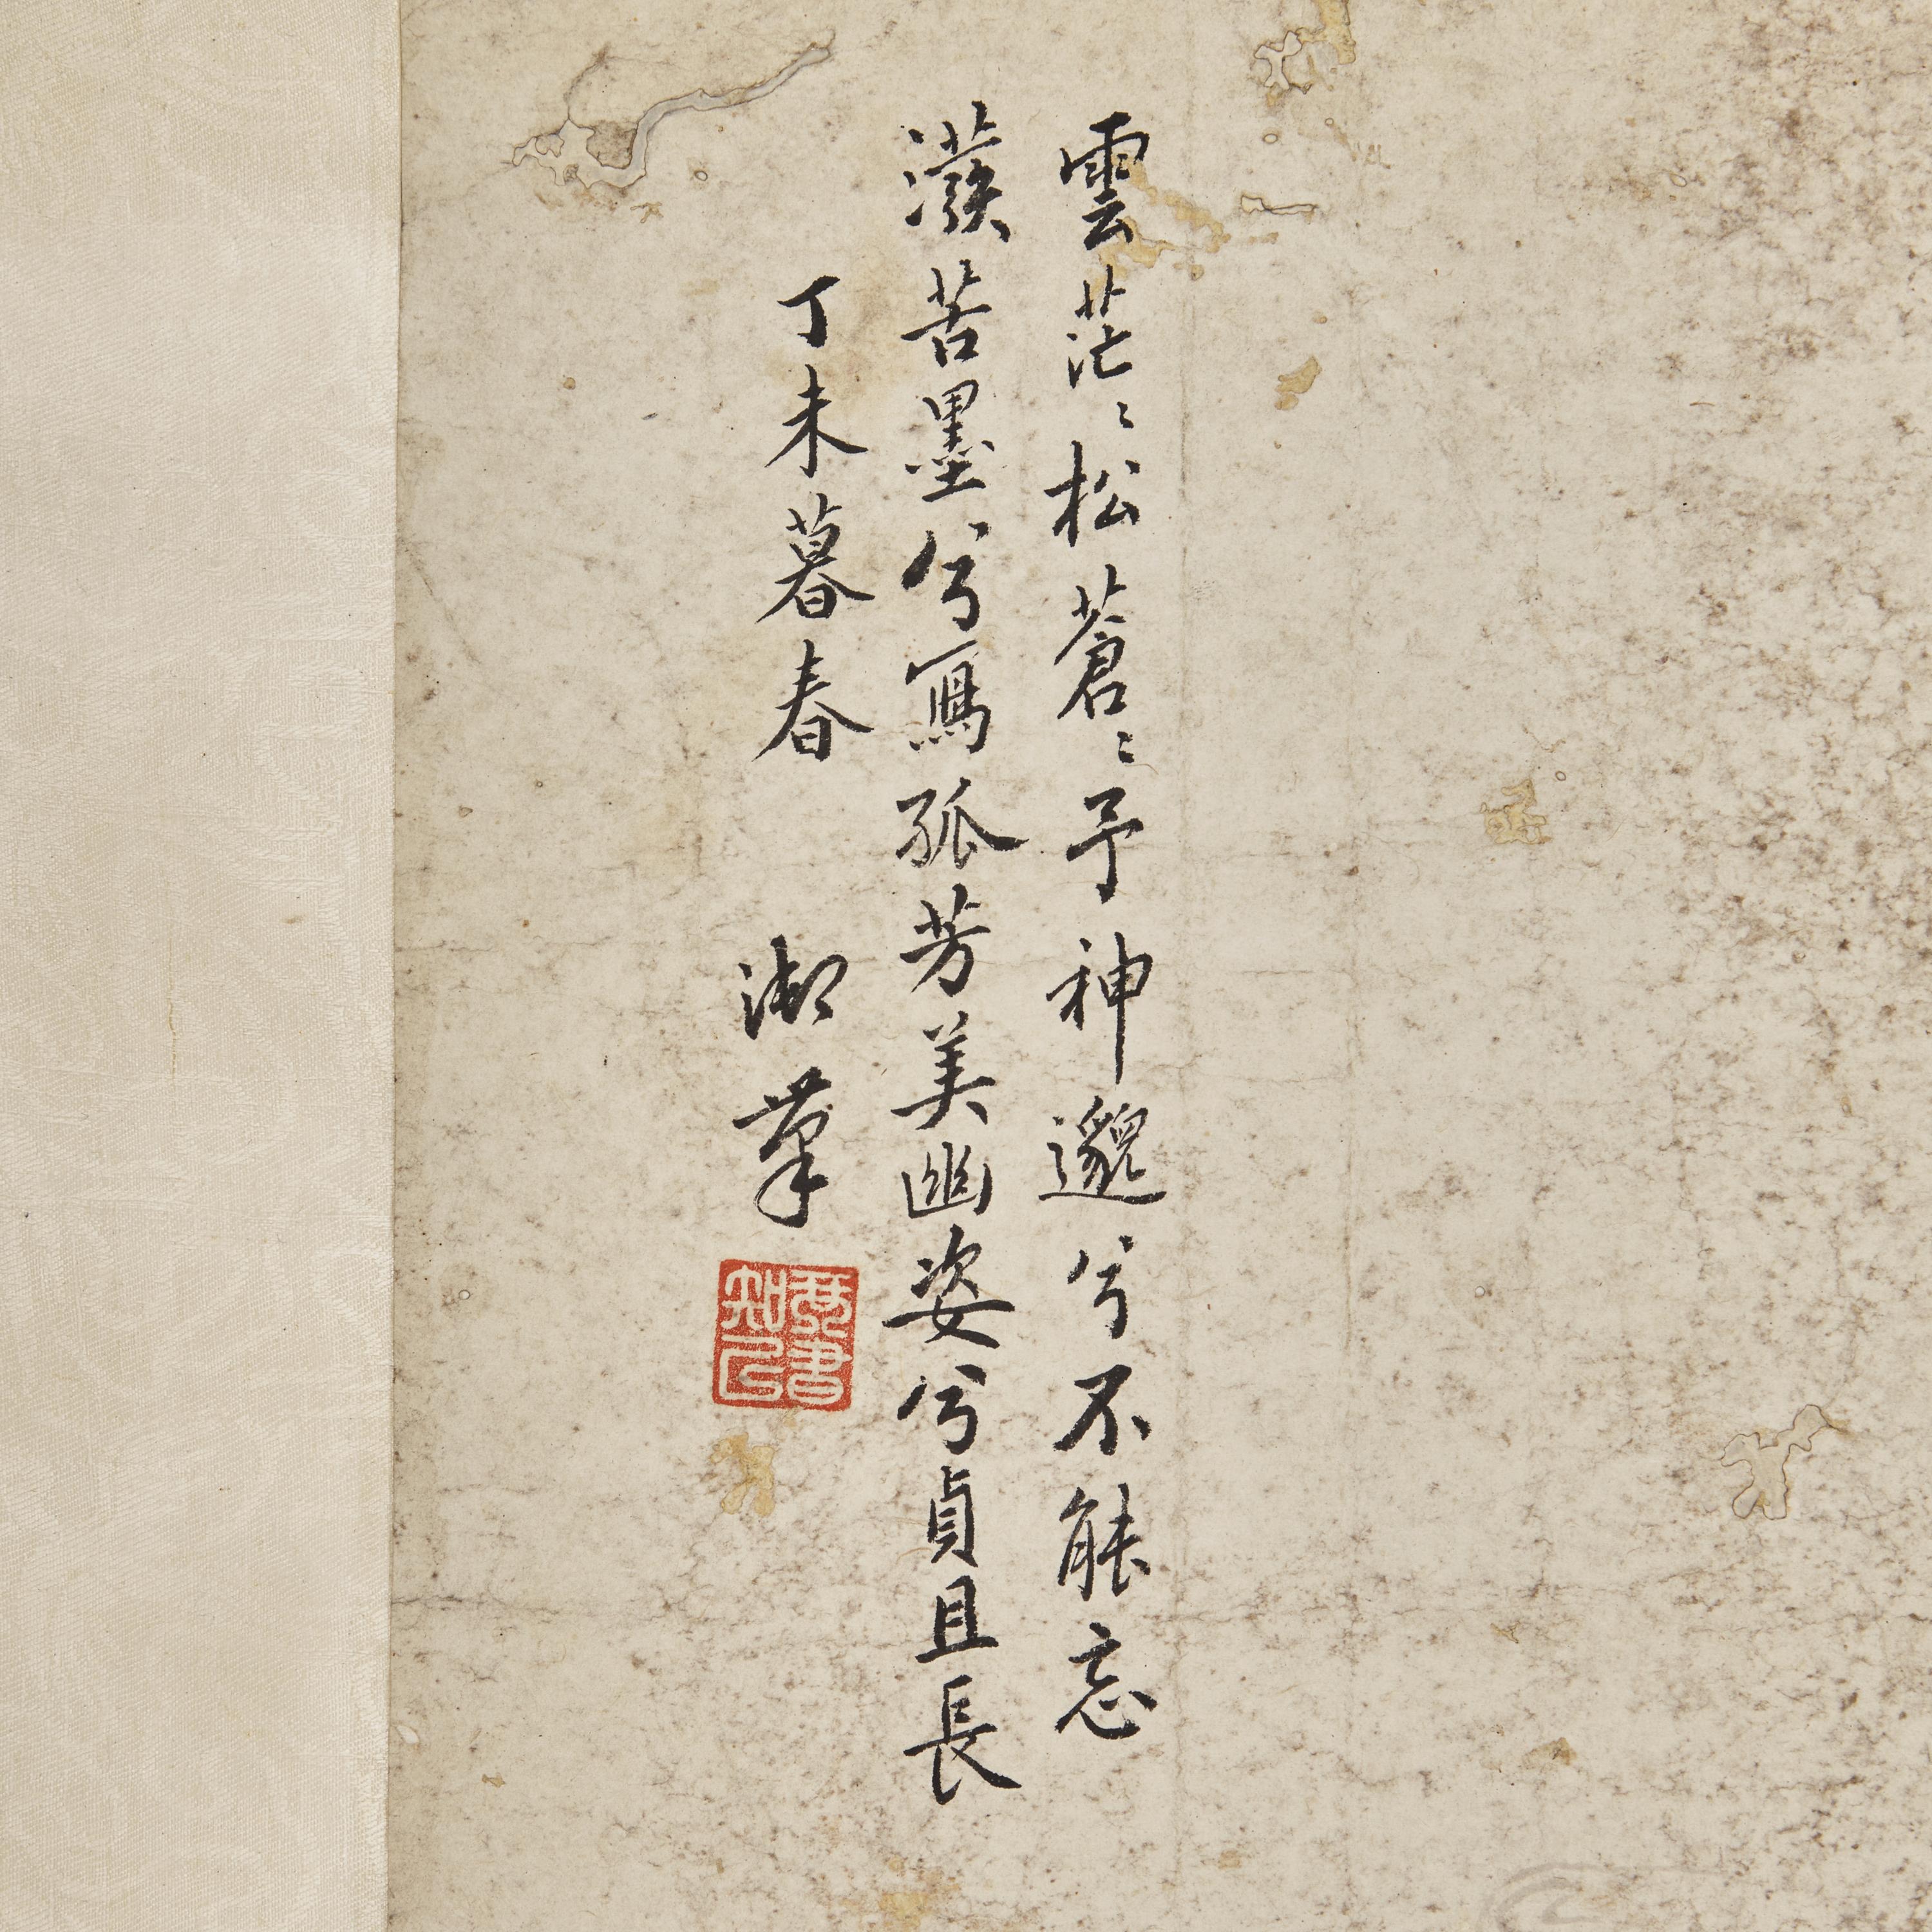 雲茫〻松蒼〻予神邈兮不能忘
潑苦墨兮寫孤芳美幽姿兮貞且長
丁未暮春 御筆
琴書知己